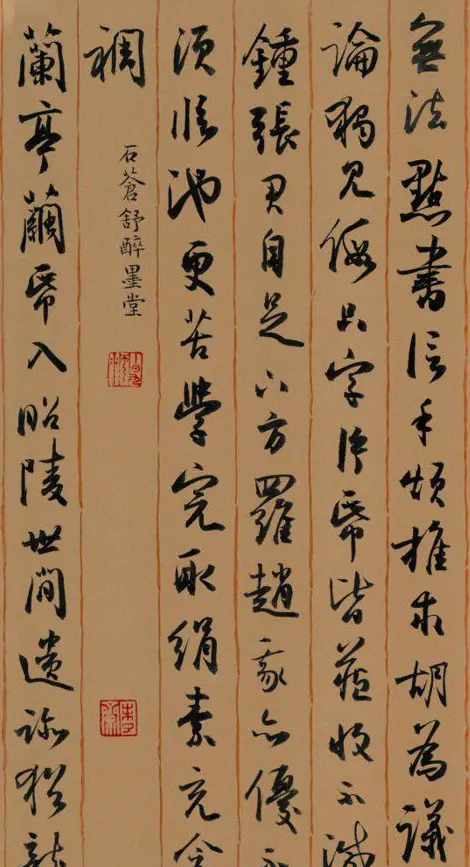 無法點畫信手煩推求胡為議
論獨見假只字片帋皆藏收不減
鍾張君自足下方羅趙我亦優不
須臨池更苦學完取絹素充衾
裯
石蒼舒醉墨堂
蘭亭繭帋入昭陵世間遺跡猶龍